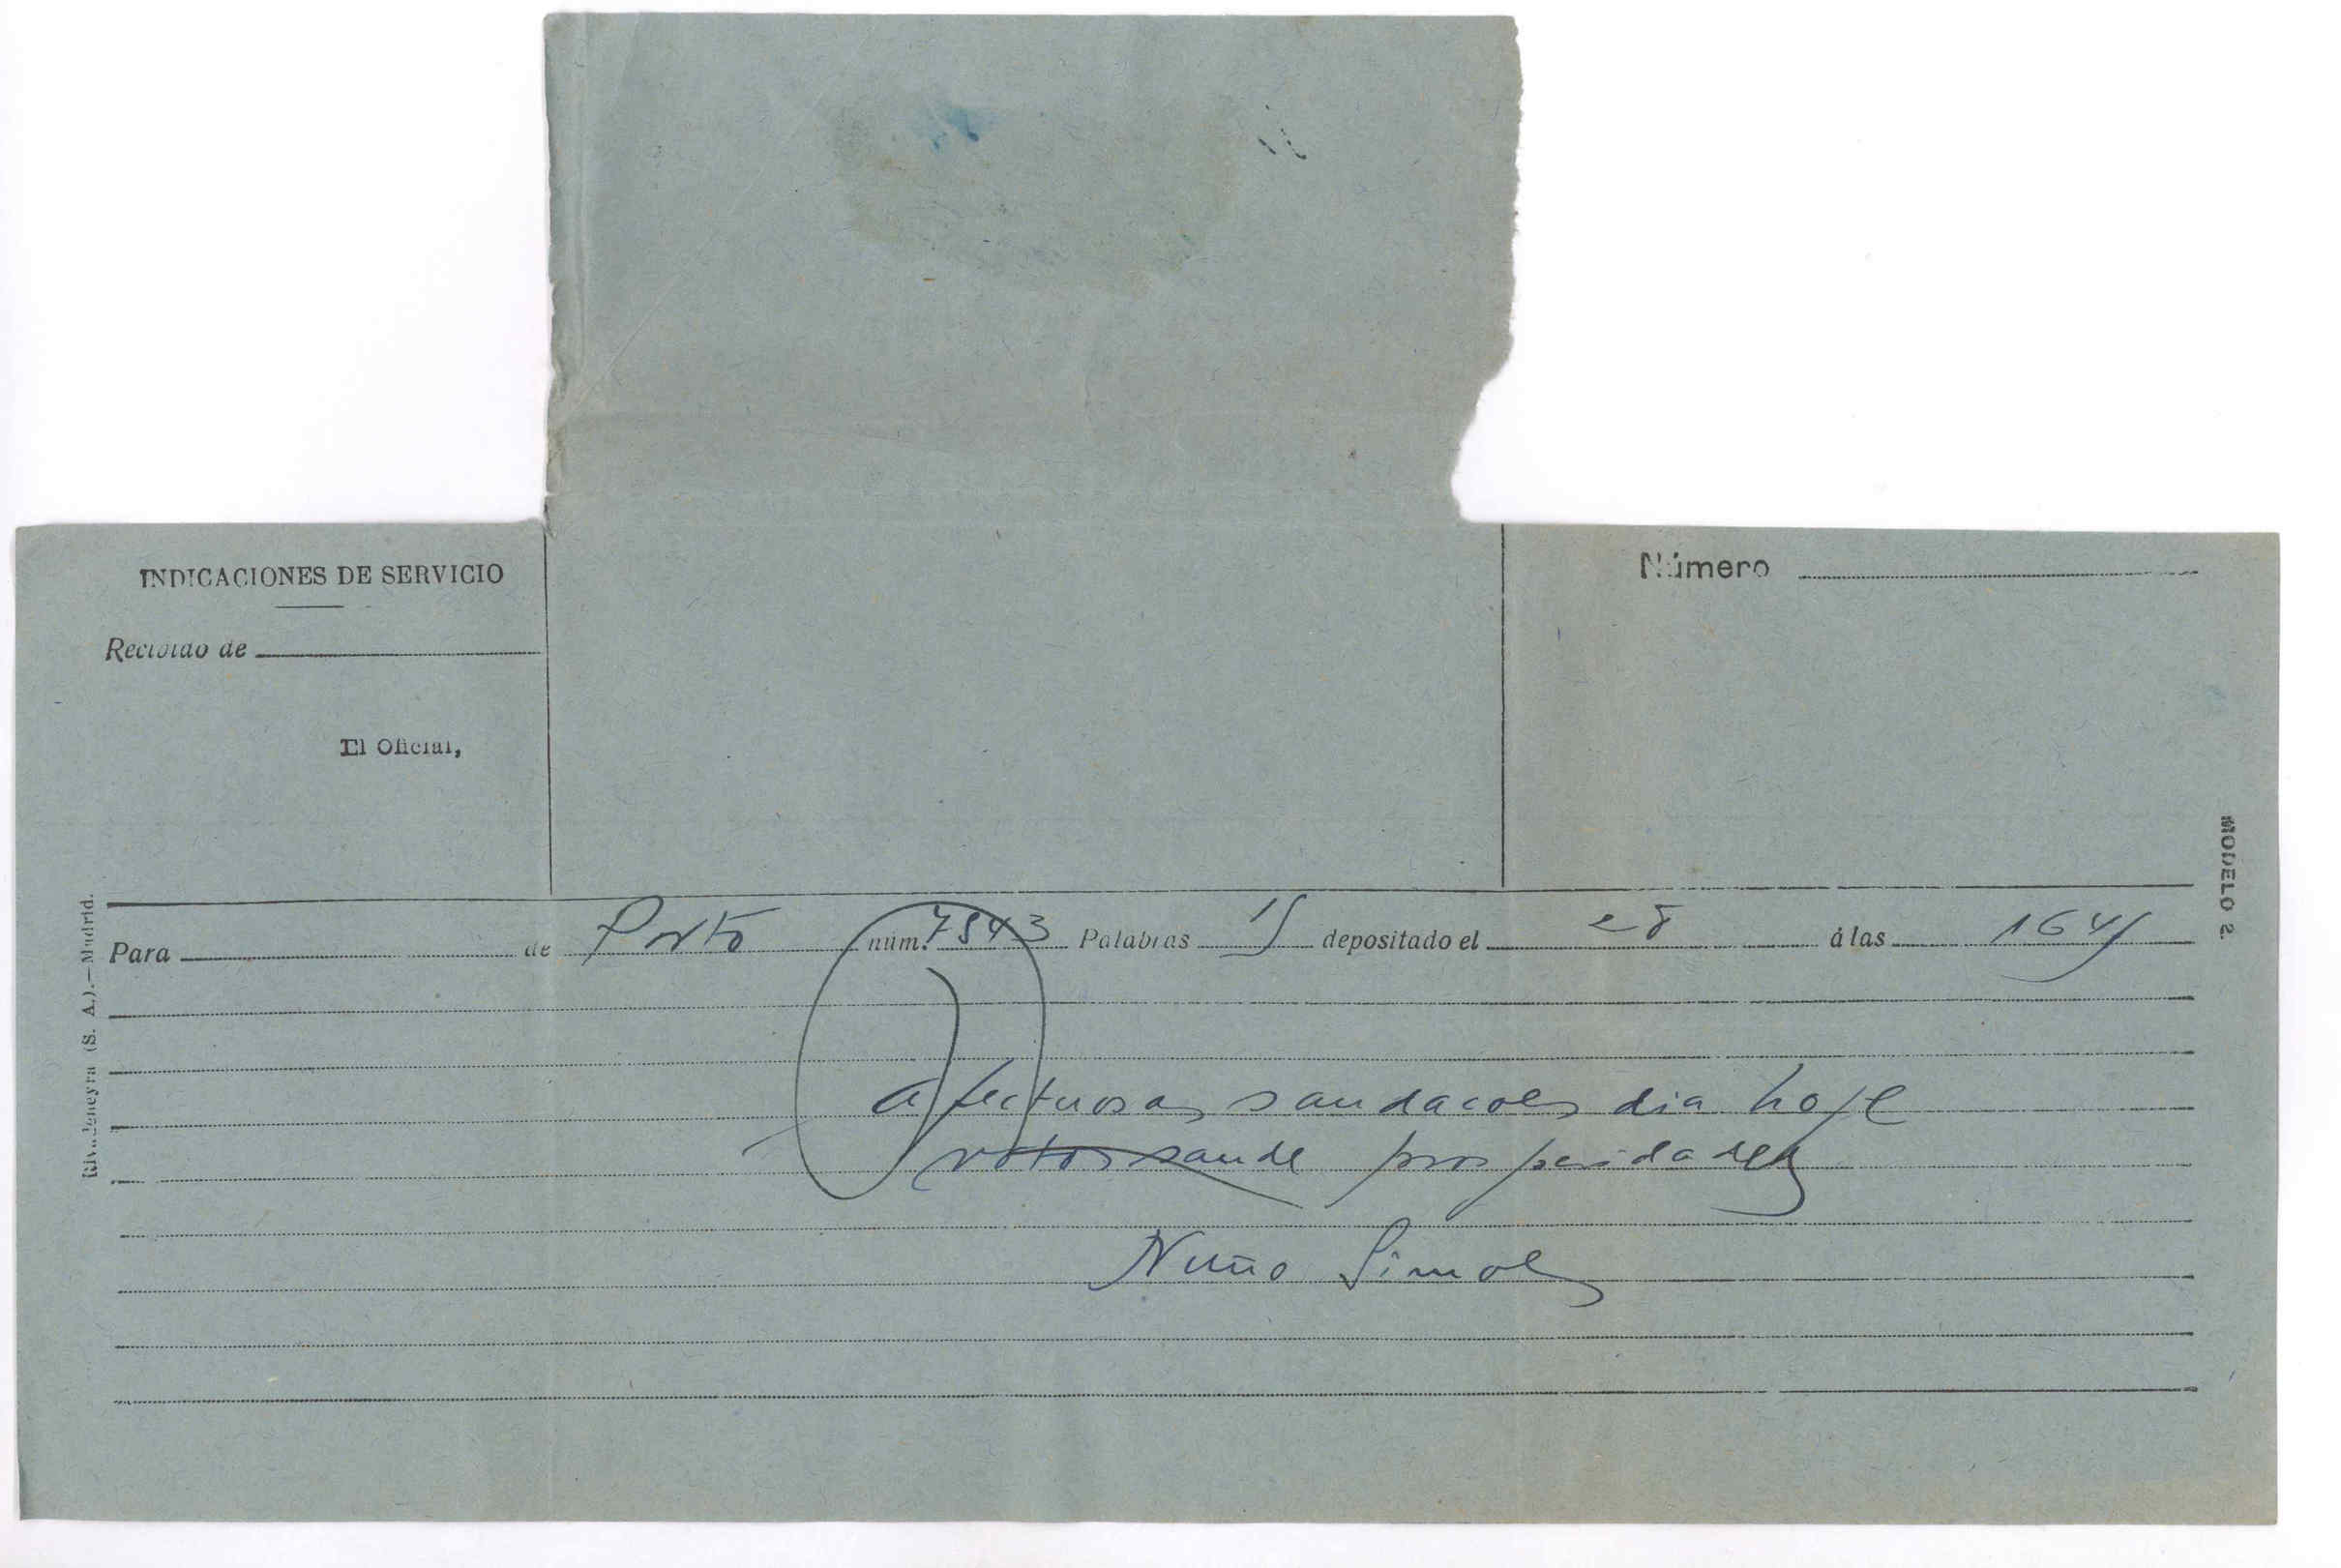 INDICACIONES DE SERVICIO
Número
Recibido de
El Oficial,
MODELO 2.
Rivadeneyra (S. A.).—Madrid.
Para de Porto núm. 7543 Palabras 15 depositado el 28 á las 1645
Afectuosas saudacoes dia hoje
votos saude prosperidades
Nuño Simoes